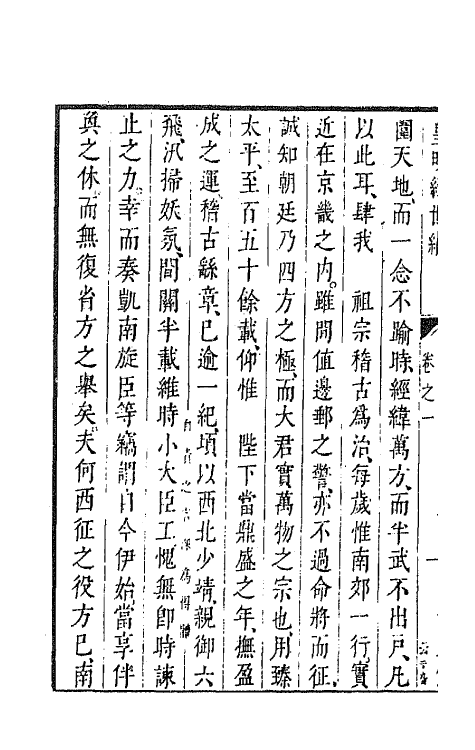 皇明經世編
卷之一
圍天地、而一念不踰時、經緯萬方、而半武不出戶、凡
以此耳、肆我　祖宗稽古爲治、每歲惟南郊一行、實
近在京畿之內。雖間值邊郵之警、亦不過命將而征、
誠知朝廷乃四方之極、而大君實萬物之宗也、用臻
太平、至百五十餘載、仰惟　陛下當鼎盛之年、撫盈
成之運稽古繇章、已逾一紀、頃以西北少靖、親御六
飛、汎掃妖氛、間關半載維時小大臣工愧無卽時諫
止之力、幸而奏凱南旋臣等竊謂自今伊始、當享伴
奐之休、而無復省方之舉矣、夫何西征之役方已、南